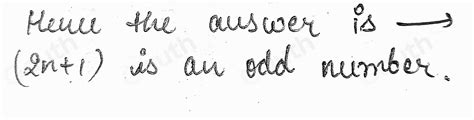 Hence the answer is ⟶
(2n+1) is an odd number.